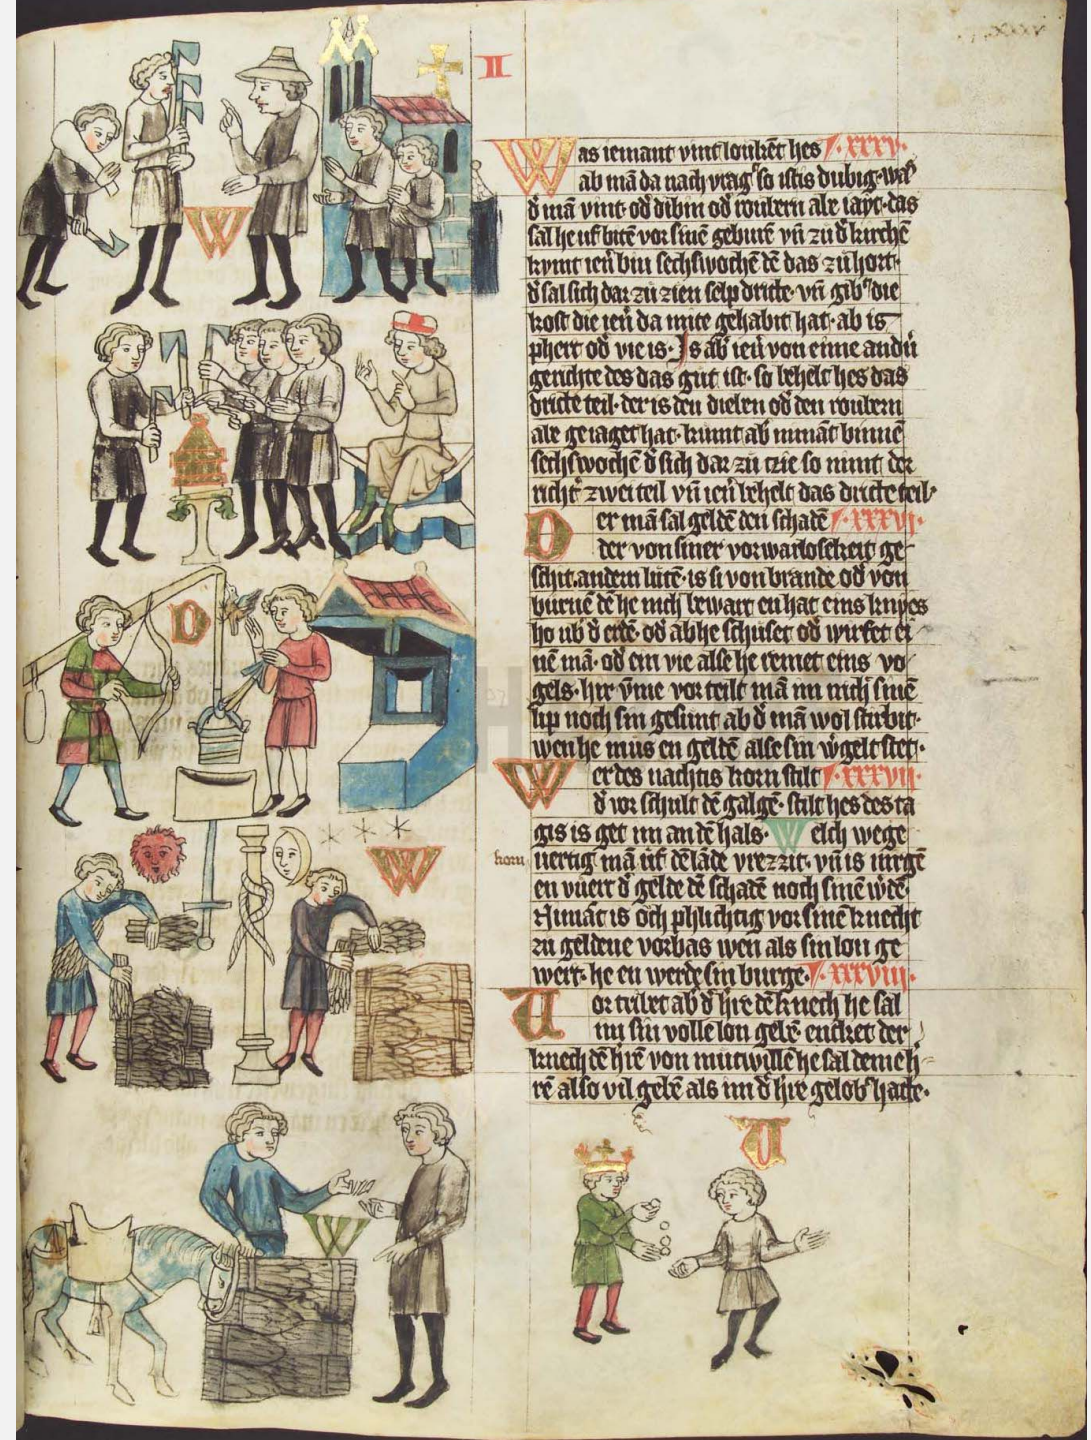 II
Was iemant vint loukēt hes xxxv.
ab mā da nach vrag so istis dubig. was
d mā vint. od dibin od roubern ale iayt. das
sal he uf bitē vor sinē geburē vn̄ zu d kirchē
kvmt ien binn sechswochē dē das zu hort.
d sal sich dar zu zien selp dritte. vn̄ gibt die
kost die ien da mite gehabit hat. ab is
phert od vie is. Is ab ien von eime andn
gerichte des das gut ist. so behelt hes das
dritte teil. der is den dieben od den roubern
ale geiaget hat. kumt ab nimāt binnē
sechswochē d sich dar zu czie so nimt der
richt zwei teil vn̄ ien behelt das dritte teil.
Der mā sal geldē den schadē xxxvi.
der von siner vorwarlosekeit ge
schit. andern lutē. is si von brande od von
burnē dē he nich bewart en hat eins knyes
ho ub d erdē. od ab he schuset od wirfet ei
nē mā. od ein vie alse he remet eins vo
gels. hir vme vorteilt mā im nich sinē
lip noch sin gesunt ab d mā wol stirbit.
wen he mus en geldē alse sin wgelt stet.
Wer des nachtis korn stilt xxxvii.
d vor schult dē galgē. stilt hes des ta
gis is get im an dē hals. Welch wege
korn
uertig mā uf dē lāde vrezzit. vn̄ is nirgē
en vuert d gelde dē schadē noch sinē wdē
Nimāt is och phlichtig vor sinē knecht
zu geldene vorbas wen als sin lon ge
wert. he en werde sin burge. xxxviii.
Vortribt ab d hre dē knech he sal
im sin volle lon gebē entket der
knech dē hrē von mutwillē he sal deme h
rē also vil gebē als im d hre gelobt hatte.
W
D
W
W
V